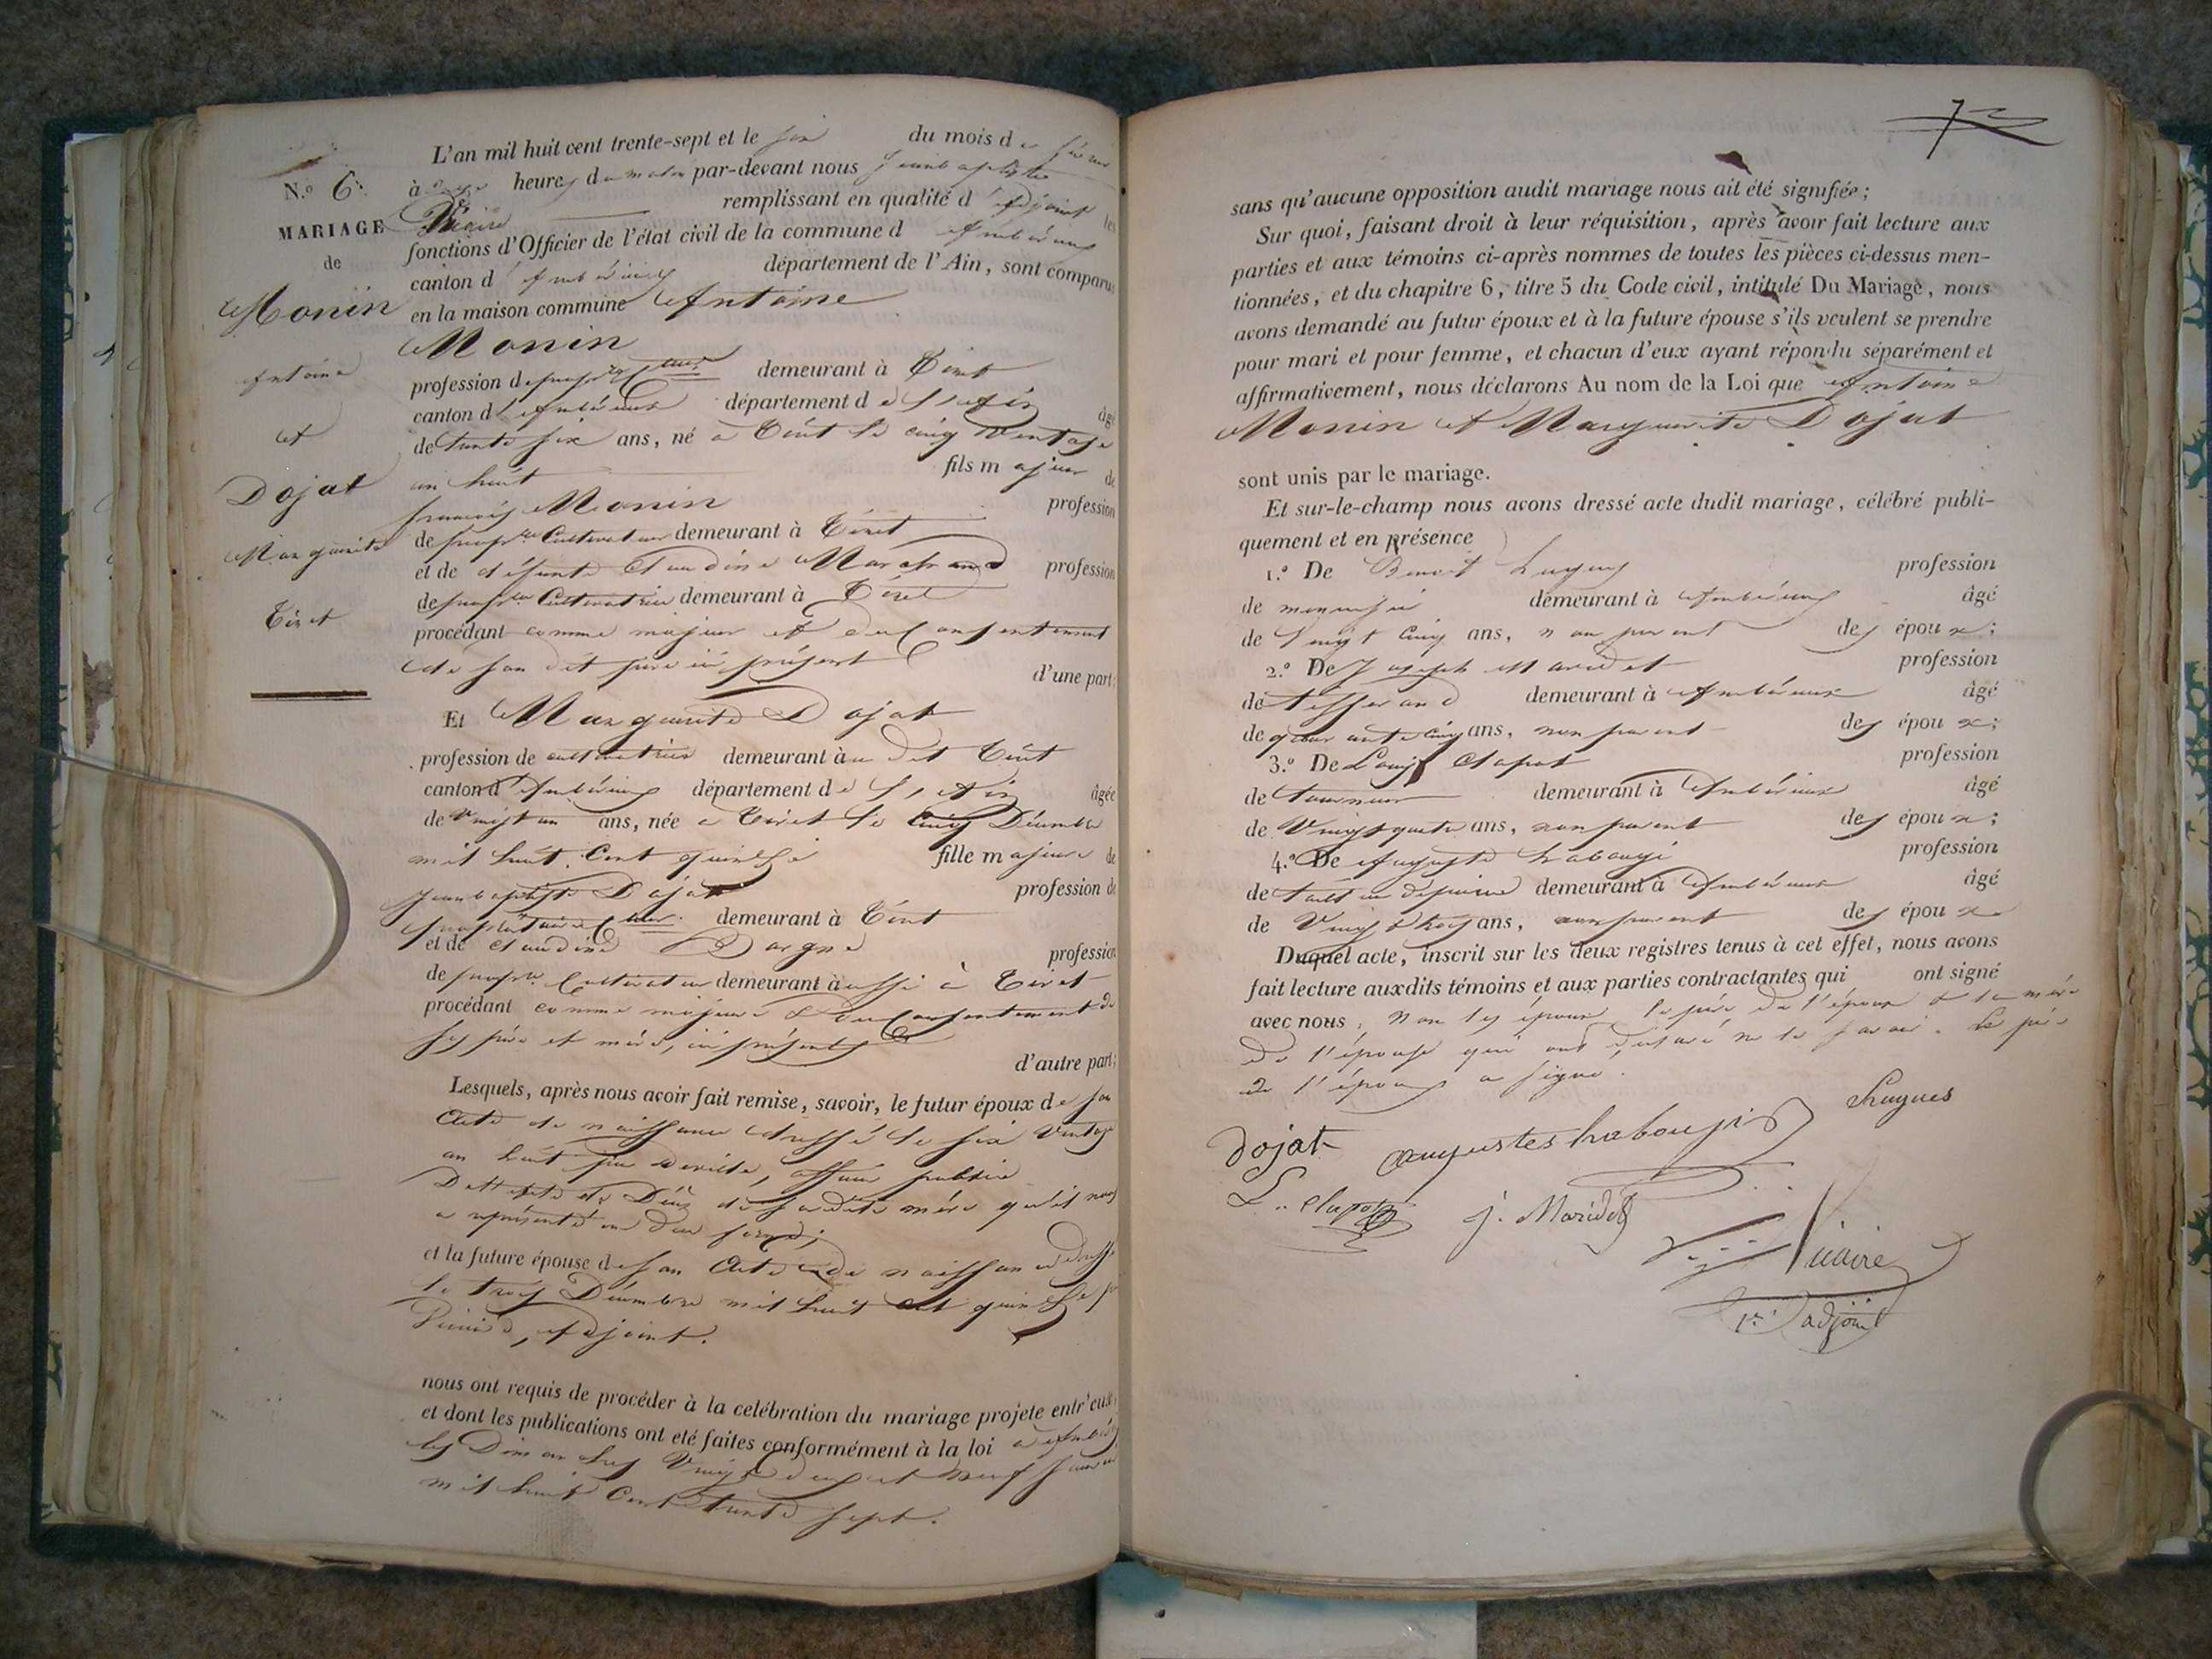 N.o 6.
MARIAGE
de
Monin
Antoine
et
Dojat
Marguerite
Tiret
L'an mil huit cent trente-sept et le six du mois de février
à heures du matin par-devant nous Jean baptiste
Vicaire remplissant en qualité d'adjoint les
fonctions d'Officier de l'état civil de la commune d'Ambérieux
canton d'Ambérieux département de l'Ain, sont comparus
en la maison commune Antoine
Monin
profession de demeurant à Tiret
canton d'Ambérieux département de l'Ain âgé
de trente six ans, né à Tiret le cinq Ventose
an huit fils majeur de
françois Monin profession
de propre Cultivateur demeurant à Tiret
et de défunte Claudine Marchand profession
de propre Cultivatrice demeurant à Tiret
procédant comme majeur et du Consentement
de son dit père ici présent d'une part;
Et Marguerite Dojat
profession de cultivatrice demeurant au dit Tiret
canton d'Ambérieux département de l'Ain âgée
de Vingt un ans, née à Tiret le Cinq Décembre
mil huit Cent quinze fille majeure de
Jean baptiste Dojat profession de
propriétaire demeurant à Tiret
et de Claudine profession
de propre Cultivateur demeurant aussi à Tiret
procédant comme majeure et du Consentement de
ses père et mère, ici présents
d'autre part;
Lesquels, après nous avoir fait remise, savoir, le futur époux de son
Acte de naissance dressé le six Ventose
an huit par officier public
de Décès de sa dite mère qu'il nous
a représenté en due forme;
et la future épouse de son Acte de naissance dressé
le trois Décembre mil huit cent quinze par
adjoint.
nous ont requis de procéder à la celébration du mariage projeté entr'eux,
et dont les publications ont été faites conformément à la loi à
les Dimanches Vingt deux et Vingt neuf Janvier
mil huit Cent trente sept.
sans qu'aucune opposition audit mariage nous ait été signifiée;
Sur quoi, faisant droit à leur réquisition, après avoir fait lecture aux
parties et aux témoins ci-après nommés de toutes les pièces ci-dessus men-
tionnées, et du chapitre 6, titre 5 du Code civil, intitulé Du Mariage, nous
avons demandé au futur époux et à la future épouse s'ils veulent se prendre
pour mari et pour femme, et chacun d'eux ayant répondu séparément et
affirmativement, nous déclarons Au nom de la Loi que Antoine
Monin et Marguerite Dojat
sont unis par le mariage.
Et sur-le-champ nous avons dressé acte dudit mariage, célébré publi-
quement et en présence
1.o De Benoit hugues profession
de menuisier demeurant à Ambérieux âgé
de Vingt Cinq ans, non parent des époux;
2.o De Joseph Maridet profession
de tisserand demeurant à Ambérieux âgé
de quarante cinq ans, non parent des époux;
3.o De Louis Clapot profession
de tourneur demeurant à Ambérieux âgé
de Vingt quatre ans, non parent des époux;
4.o De Auguste profession
de tailleur de pierre demeurant à Ambérieux âgé
de Vingt trois ans, non parent des époux
Duquel acte, inscrit sur les deux registres tenus à cet effet, nous avons
fait lecture auxdits témoins et aux parties contractantes qui ont signé
avec nous, Non les époux le père de l'époux et la mère
de l'épouse qui ont déclaré ne le savoir. Le père
de l'épouse a signé.
Dojat hugues
L. Clapot J. Maridet
Vicaire
1er adjoint